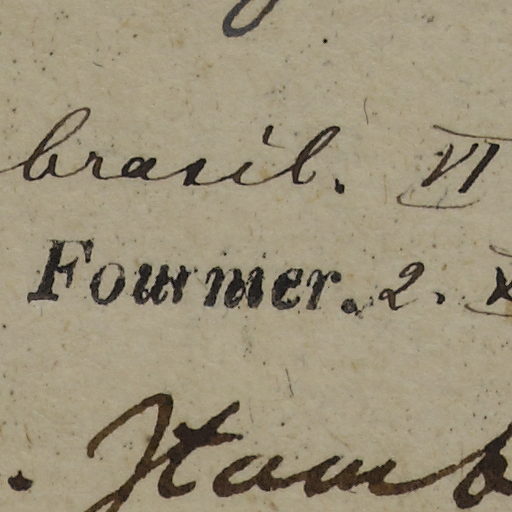 brasil. VI
Fournier. 2.
. Stamb